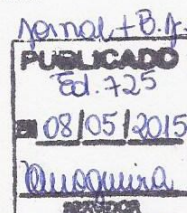 Jornal + B.J.
PUBLICADO
Ed. 725
EM 08/05/2015
SERVIDOR